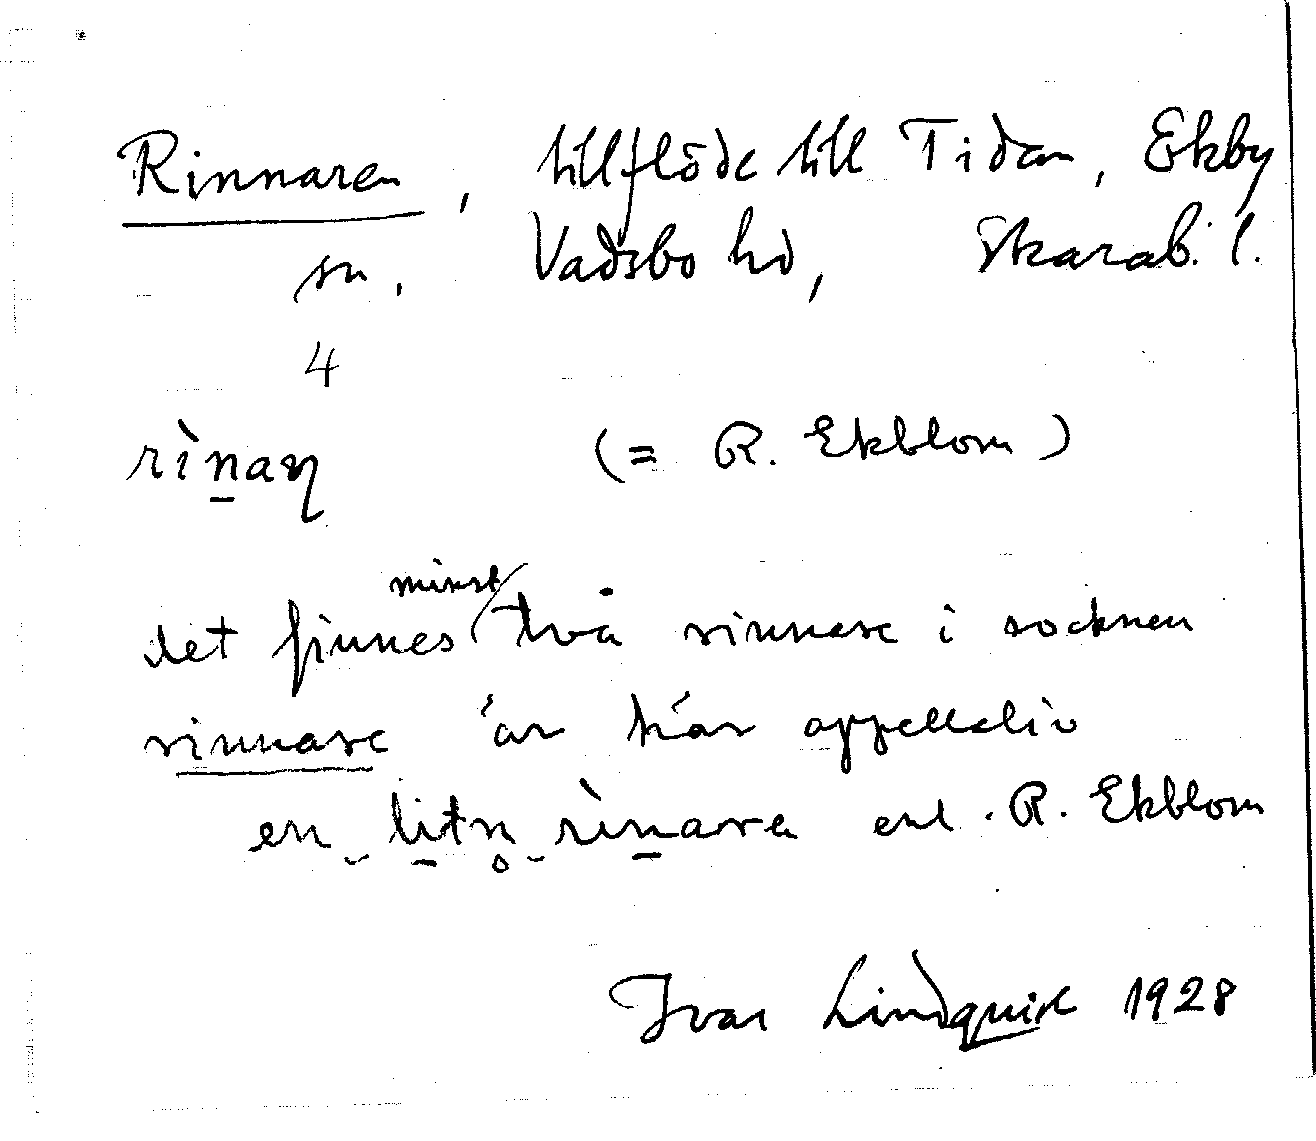 Rinnaren, tillflöde till Tidan, Ekby
sn, Vadsbo hd, Skarab. l.
4
rìn̠aŋ (= R. Ekblom)
minst
det finnes två rinnare i socknen
rinnare är här appellativ
en ̮ li̠tn̥ ̮ rìn̠ara enl. R. Ekblom
Ivar Lindquist 1928